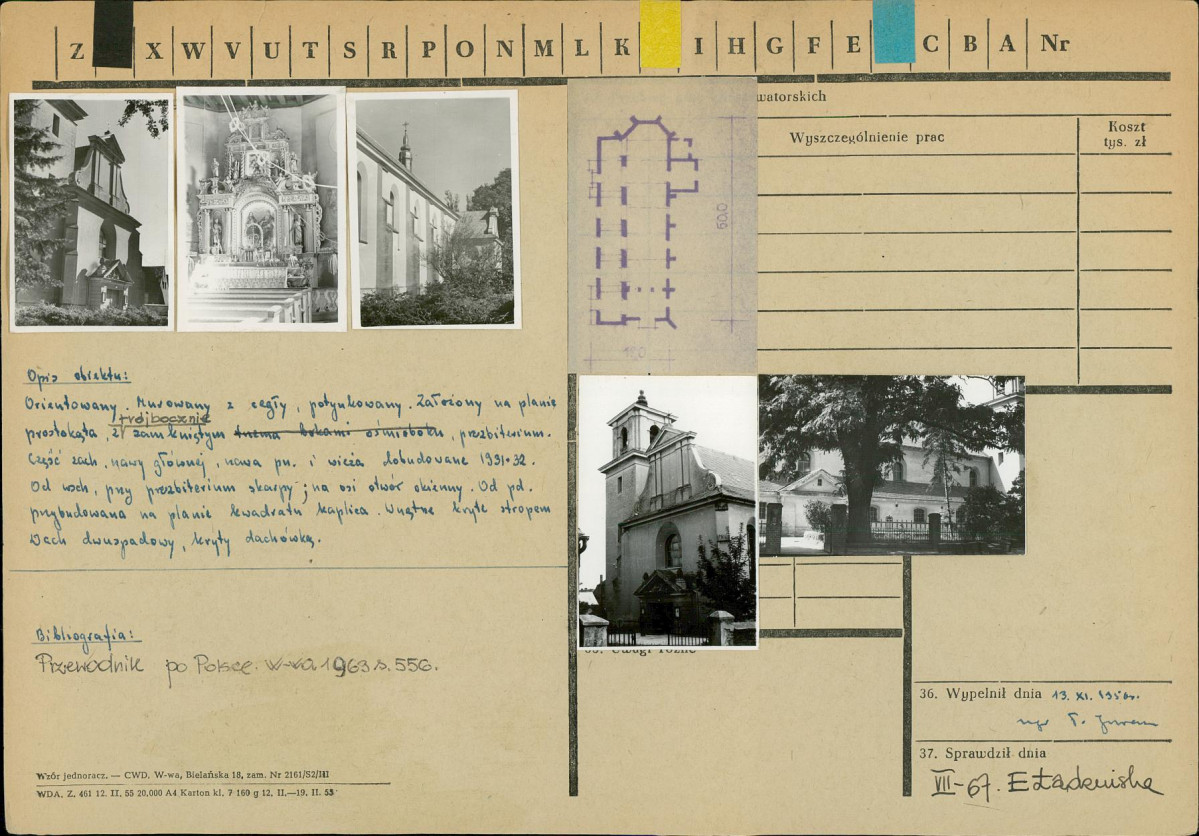 Z X W V U T S R P O N M L K I H G F E C B A Nr
watorskich
Wyszczególnienie prac
Koszt
tys. zł
60,0
19,0
Opis obiektu:
Orientowany. Murowany z cegły, potynkowany. Założony na planie
trójbocznie
prostokąta, z zamkniętym trzema bokami ośmioboku, prezbiterium.
Część zach. nawy głównej, nawa pn. i wieża dobudowane 1931-32.
Od wsch. przy prezbiterium skarpy; na osi otwór okienny. Od pd.
przybudowana na planie kwadratu kaplica. Wnętrze kryte stropem
Dach dwuspadowy, kryty dachówką.
Bibliografia:
Przewodnik po Polsce. W-wa 1963 s. 556.
Uwagi różne
36. Wypełnił dnia 13. XI.
mgr T.
37. Sprawdził dnia
VII-67.
Wzór jednoracz. — CWD. W-wa, Bielańska 18, zam. Nr 2161/S2/III
WDA. Z. 461 12. II. 55 20,000 A4 Karton kl. 7 160 g 12. II.—19. II. 55